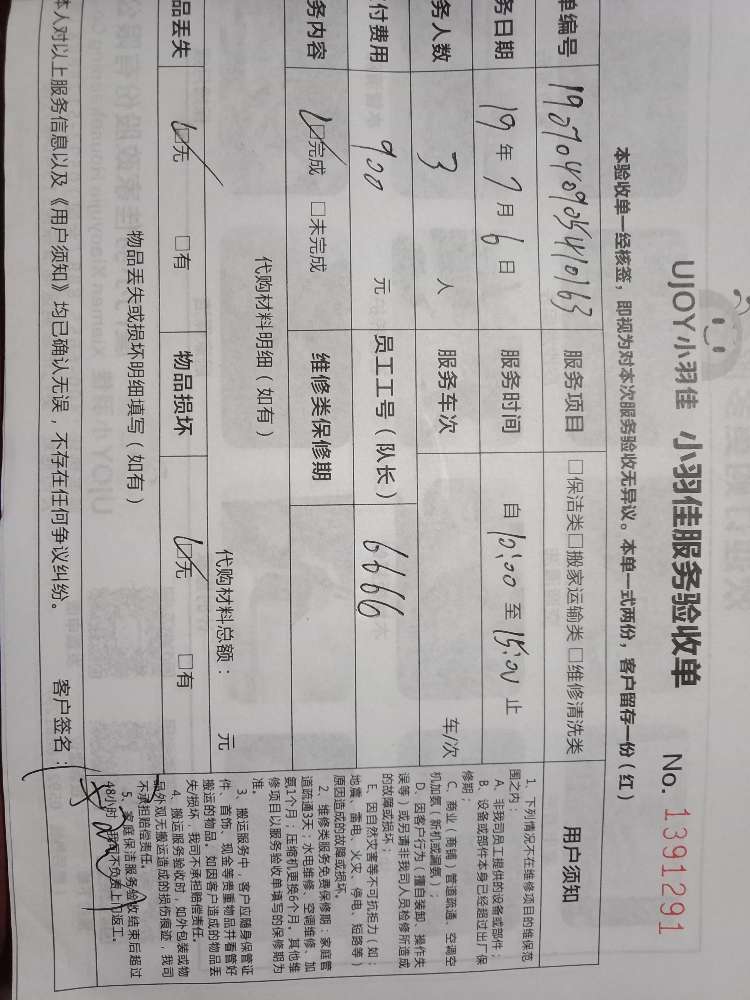 UJOY小羽佳 小羽佳服务验收单 No. 1391291
本验收单一经核签，即视为对本次服务验收无异议。本单一式两份，客户留存一份（红）
单编号 服务项目 □保洁类□搬家运输类□维修清洗类
务日期 19年7月6日 服务时间 自10:00至15:00止
务人数 3人 服务车次 车/次
付费用 900元 员工工号（队长） 6666
务内容 □完成 □未完成 维修类保修期
代购材料明细（如有）
代购材料总额： 元
品丢失 □无 □有 物品损坏 □无 □有
物品丢失或损坏明细填写（如有）
本人对以上服务信息以及《用户须知》均已确认无误，不存在任何争议纠纷。 客户签名：
用户须知
1、下列情况不在维修项目的维保范
围之内：
A、非我司员工提供的设备或部件；
B、设备或部件本身已经超过出厂保
修期；
C、商业（商铺）管道疏通、空调空
机加氨（新机或漏氨）；
D、因客户行为（擅自装卸、操作失
误等）或另请非我司人员检修所造成
的故障或损坏；
E、因自然灾害等不可抗拒力（如：
地震、雷电、火灾、停电、短路等）
原因造成的故障或损坏。
2、维修类服务免费保修期：家庭管
道疏通3天；水电维修、空调维修、加
氨1个月；压缩机更换6个月，其他维
修项目以服务验收单填写的保修期为
准。
3、搬运服务中，客户应随身保管证
件、首饰、现金等贵重物品并看管好
搬运的物品。如因客户造成的物品丢
失/损坏，我司不承担赔偿责任。
4、搬运服务验收时，如外包装或物
品外观无搬运造成的损伤痕迹，我司
不承担赔偿责任。
5、家庭保洁服务验收结束后超过
48小时，我司不负责上门返工。